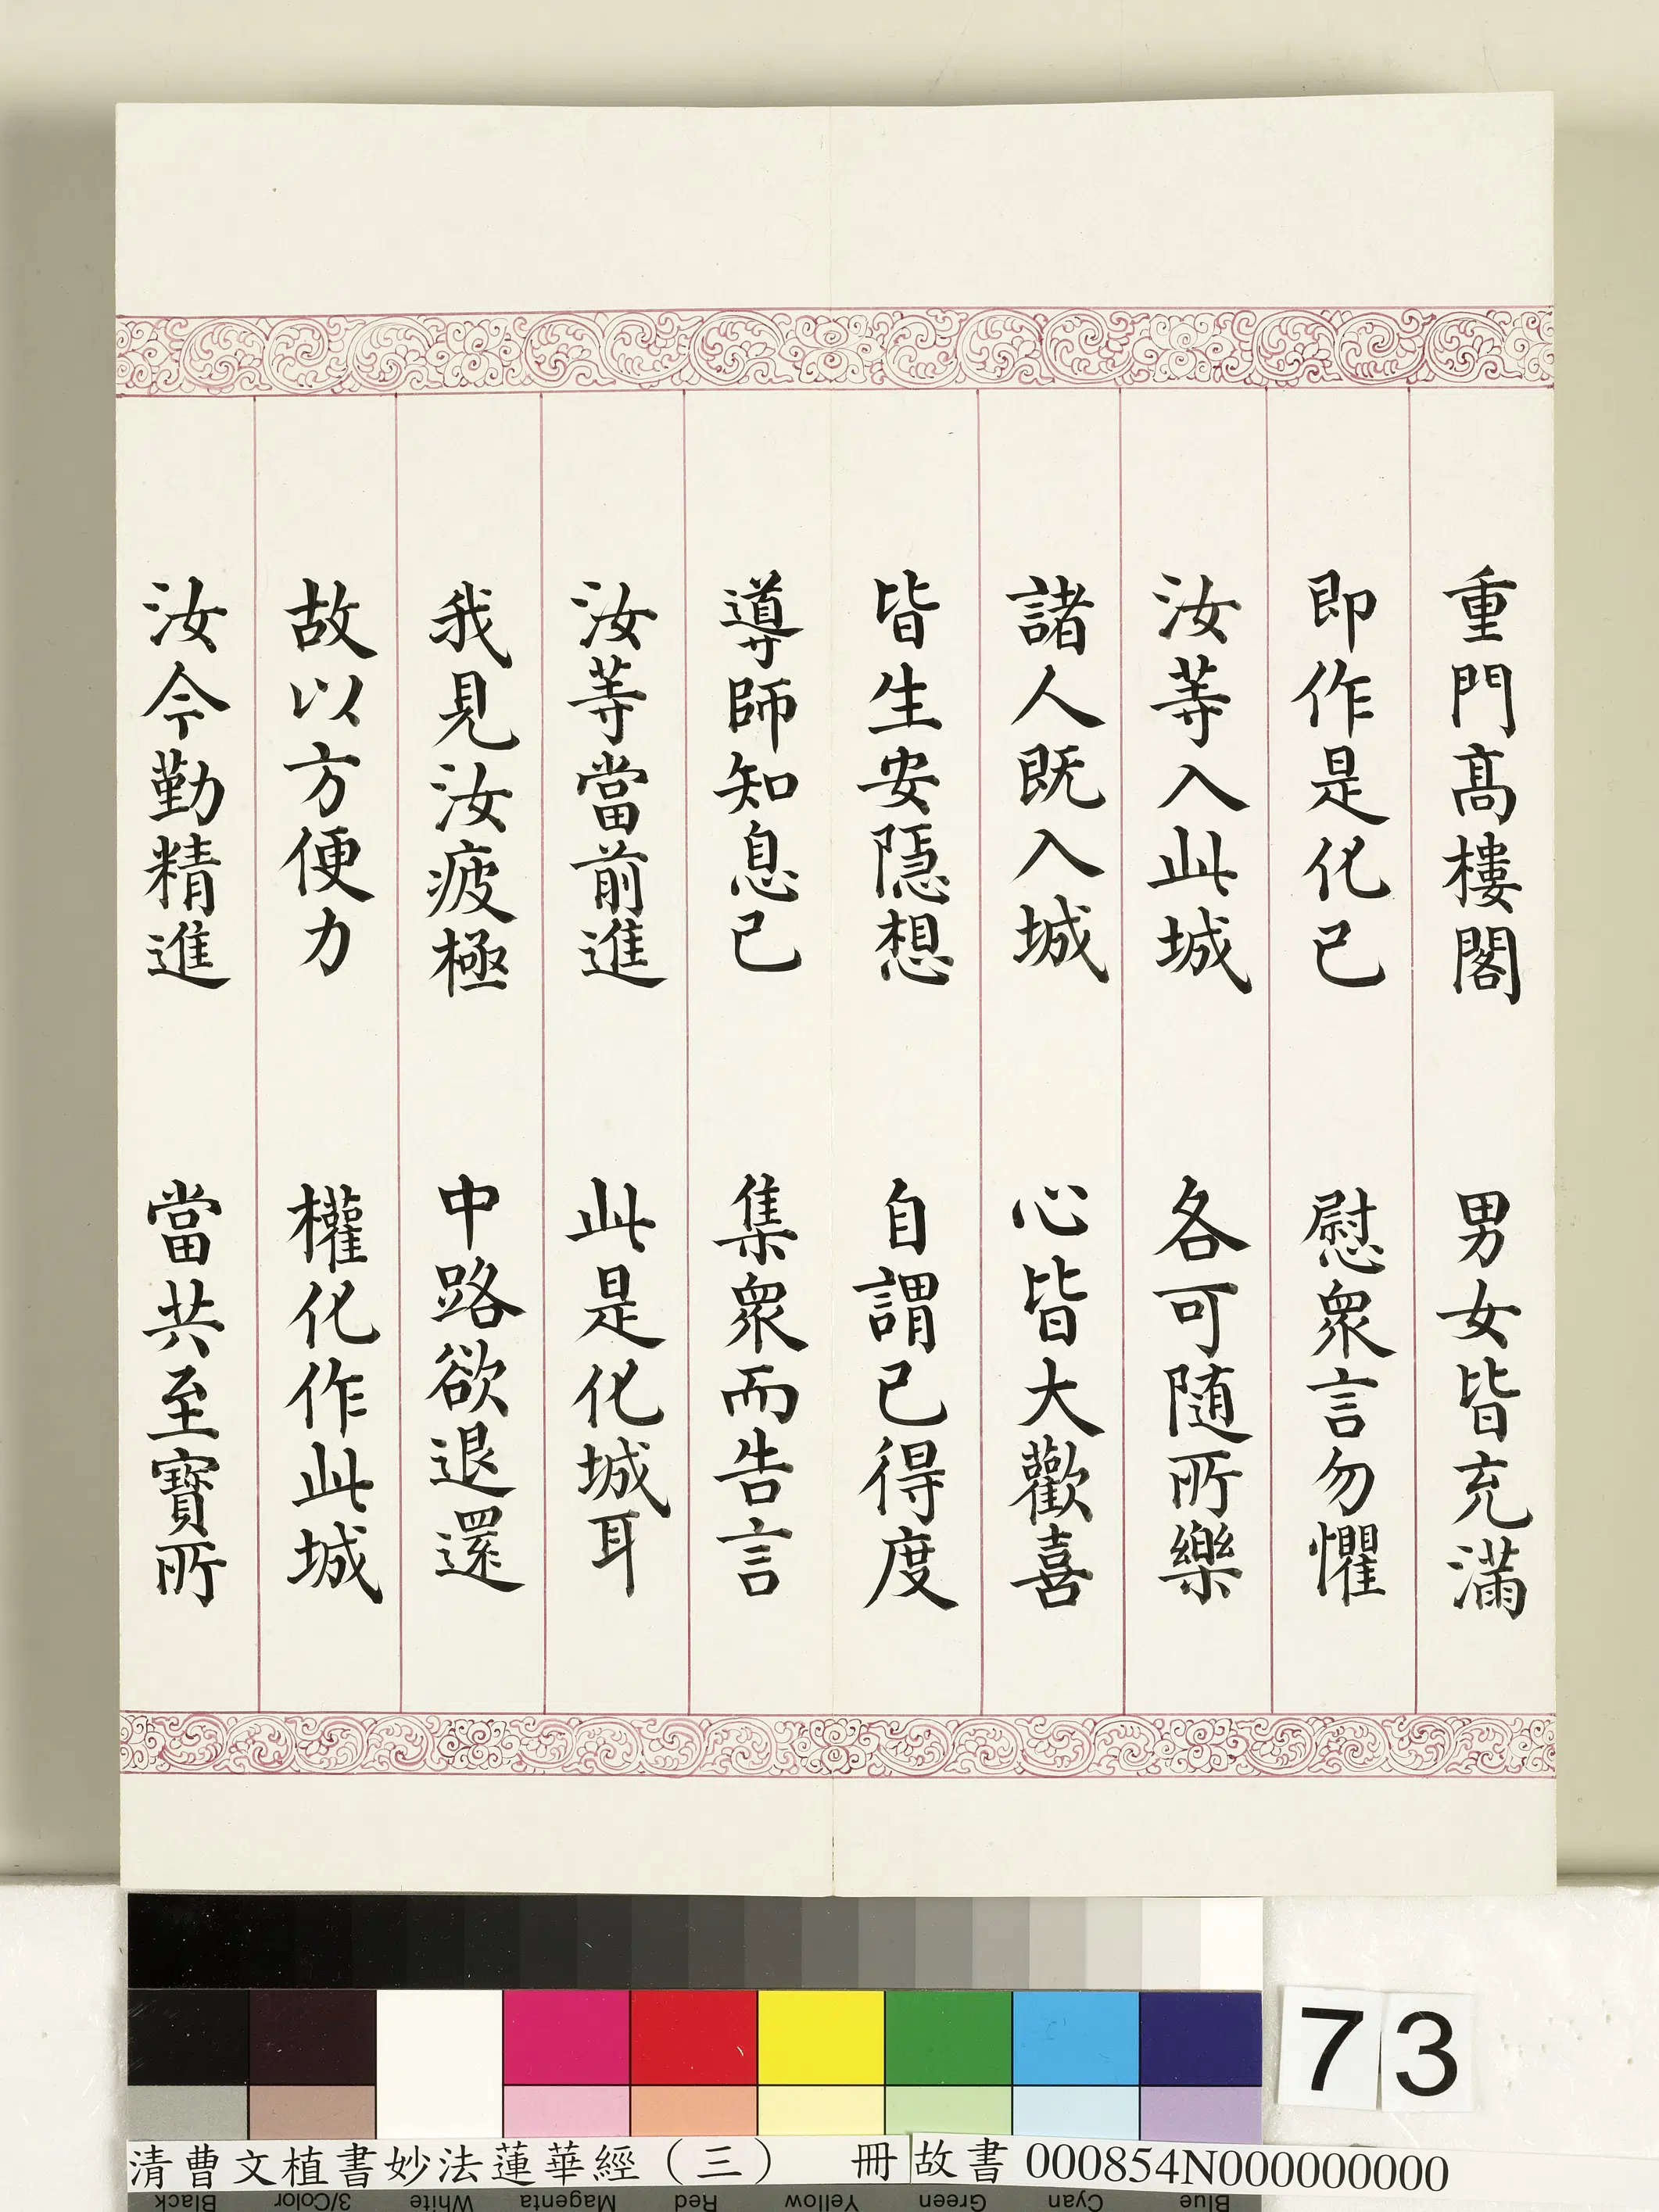 重門髙樓閣　男女皆充滿
即作是化已　慰衆言勿懼
汝等入此城　各可随所樂
諸人既入城　心皆大歡喜
皆生安隱想　自謂已得度
導師知息已　集衆而告言
汝等當前進　此是化城耳
我見汝疲極　中路欲退還
故以方便力　權化作此城
汝今勤精進　當共至寶所
73
清曹文植書妙法蓮華經（三）　冊　故書 000854N000000000
Black 3/Color White Magenta Red Yellow Green Cyan Blue